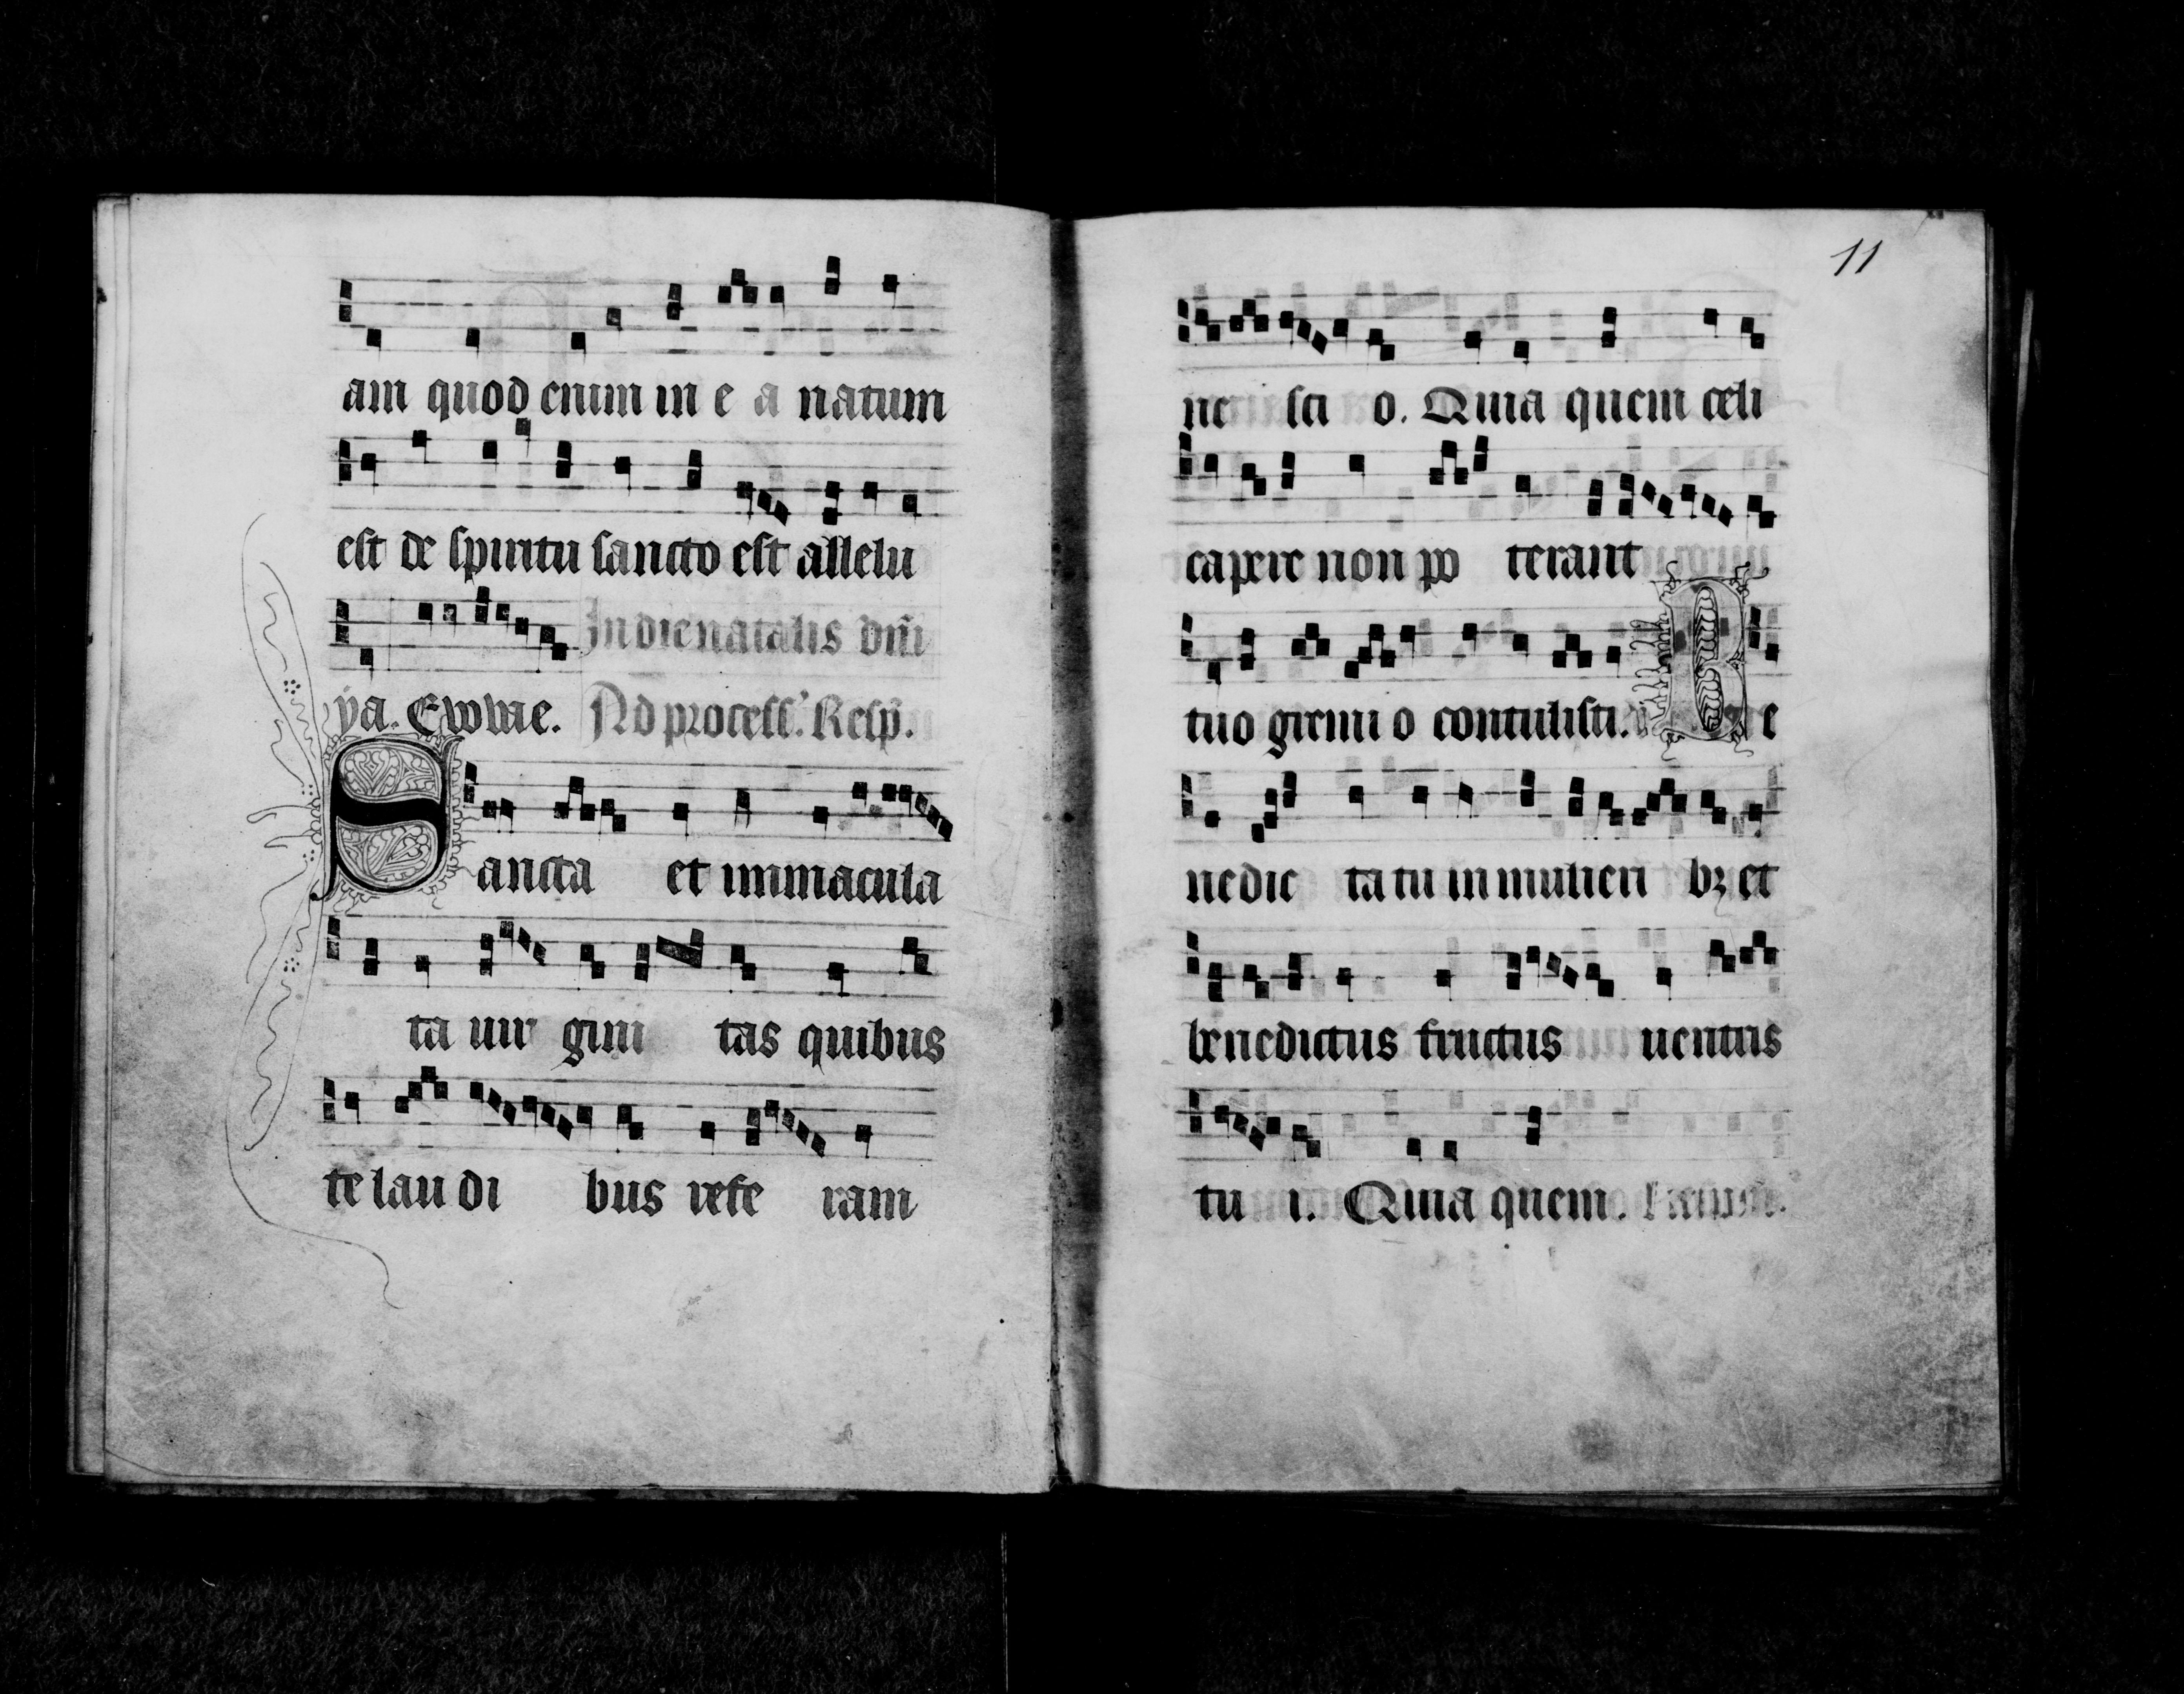 am quod enim in e a natum
est de spiritu sancto est allelu
In die natalis dñi
ya. Evovae. Ad process.' Resp̃.
Sancta et immacula
ta uir gini tas quibus
te lau di bus refe ram
11
ne sci o. Quia quem celi
capere non po terant
tuo gremi o contulisti. Be
nedic ta tu in mulieri bꝫ et
benedictus fructus uentris
tu i. Quia quem.